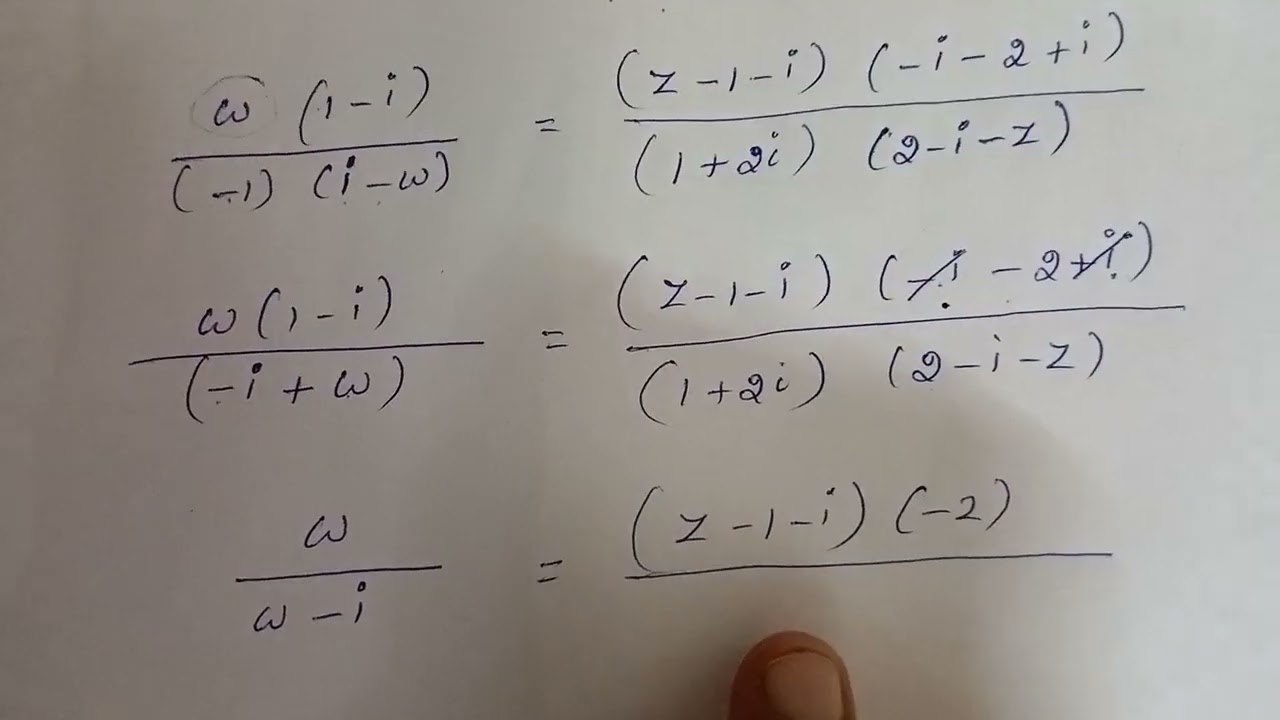 ω (1-i) / (-1) (i-ω) = (z-1-i) (-i-2+i) / (1+2i) (2-i-z)
ω(1-i) / (-i+ω) = (z-1-i) (-i-2+i) / (1+2i) (2-i-z)
ω / ω-i = (z-1-i) (-2)